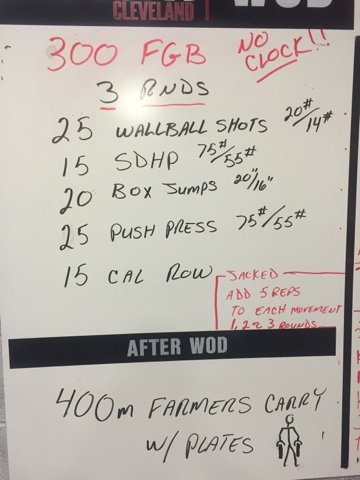 CLEVELAND
WOD
300 FGB
NO CLOCK!!
3 RNDS
25 WALLBALL SHOTS 20#/14#
15 SDHP 75#/55#
20 BOX JUMPS 20"/16"
25 PUSH PRESS 75#/55#
15 CAL ROW
JACKED
ADD 5 REPS
TO EACH MOVEMENT
3 ROUNDS
AFTER WOD
400m FARMERS CARRY
W/ PLATES